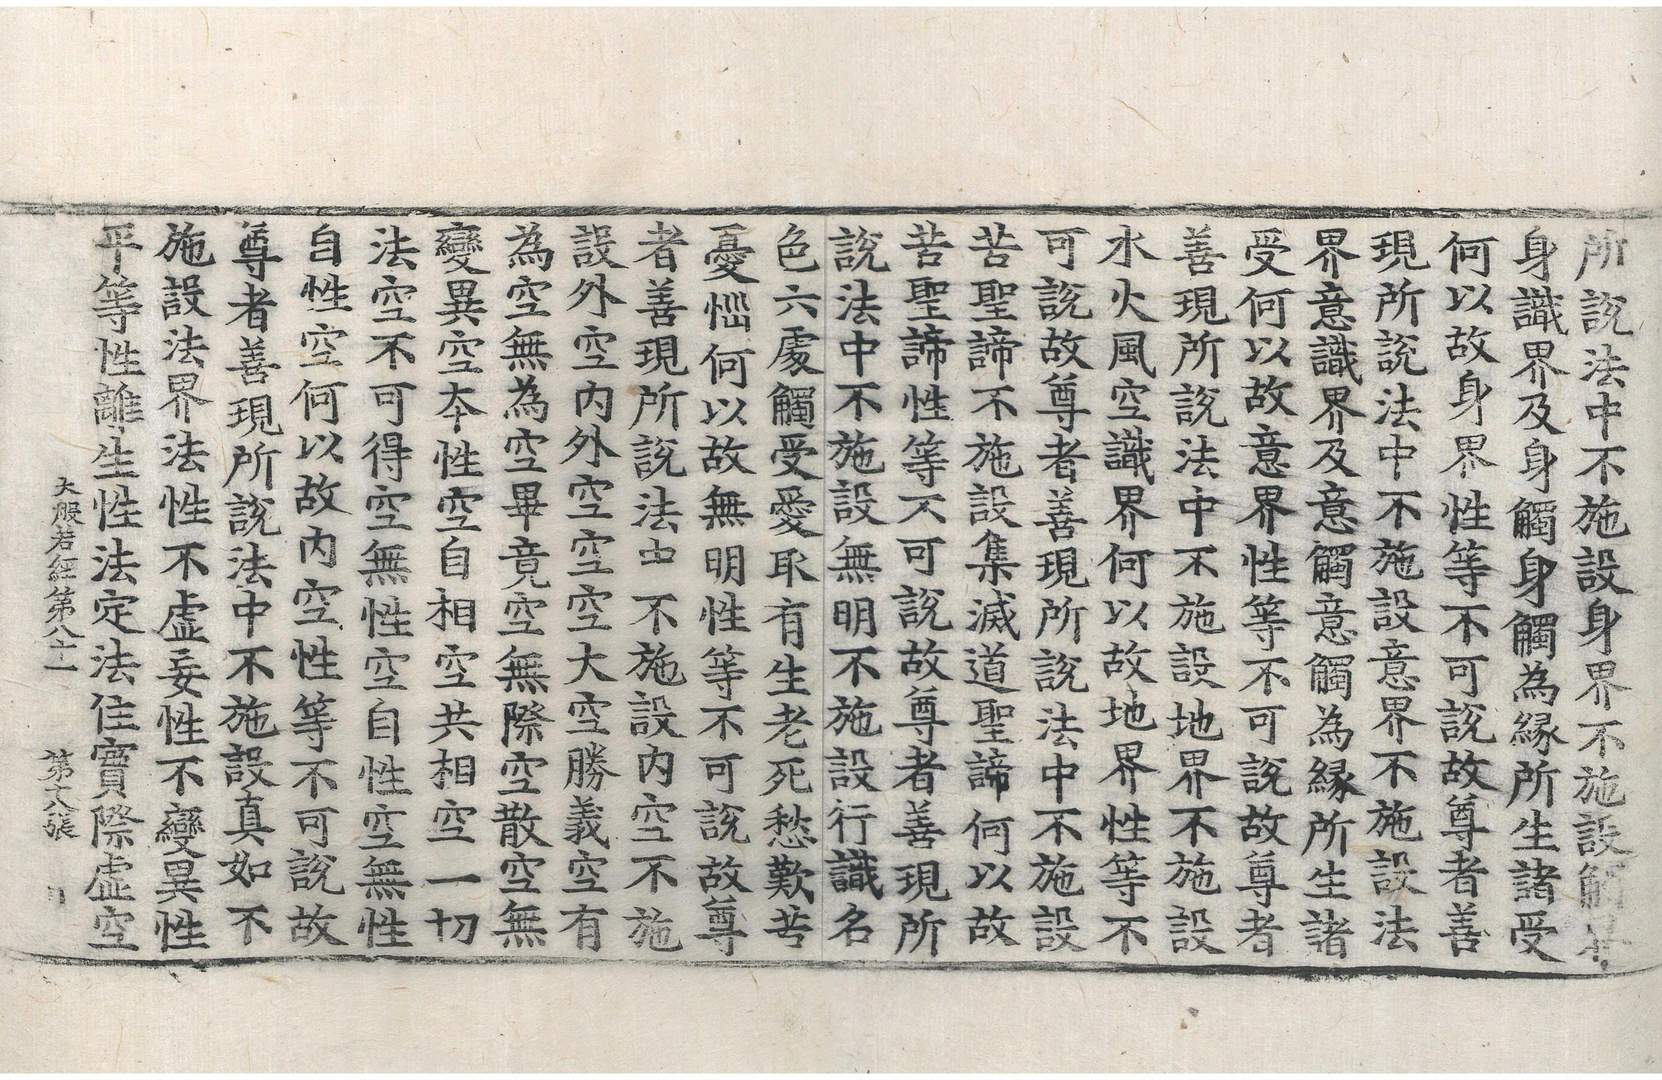 所說法中不施設身界不施設觸界
身識界及身觸身觸為緣所生諸受
何以故身界性等不可說故尊者善
現所說法中不施設意界不施設法
界意識界及意觸意觸為緣所生諸
受何以故意界性等不可說故尊者
善現所說法中不施設地界不施設
水火風空識界何以故地界性等不
可說故尊者善現所說法中不施設
苦聖諦不施設集滅道聖諦何以故
苦聖諦性等不可說故尊者善現所
說法中不施設無明不施設行識名
色六處觸受愛取有生老死愁歎苦
憂惱何以故無明性等不可說故尊
者善現所說法中不施設內空不施
設外空內外空空空大空勝義空有
為空無為空畢竟空無際空散空無
變異空本性空自相空共相空一切
法空不可得空無性空自性空無性
自性空何以故內空性等不可說故
尊者善現所說法中不施設真如不
施設法界法性不虛妄性不變異性
平等性離生性法定法住實際虛空
大般若經第八十一 第張